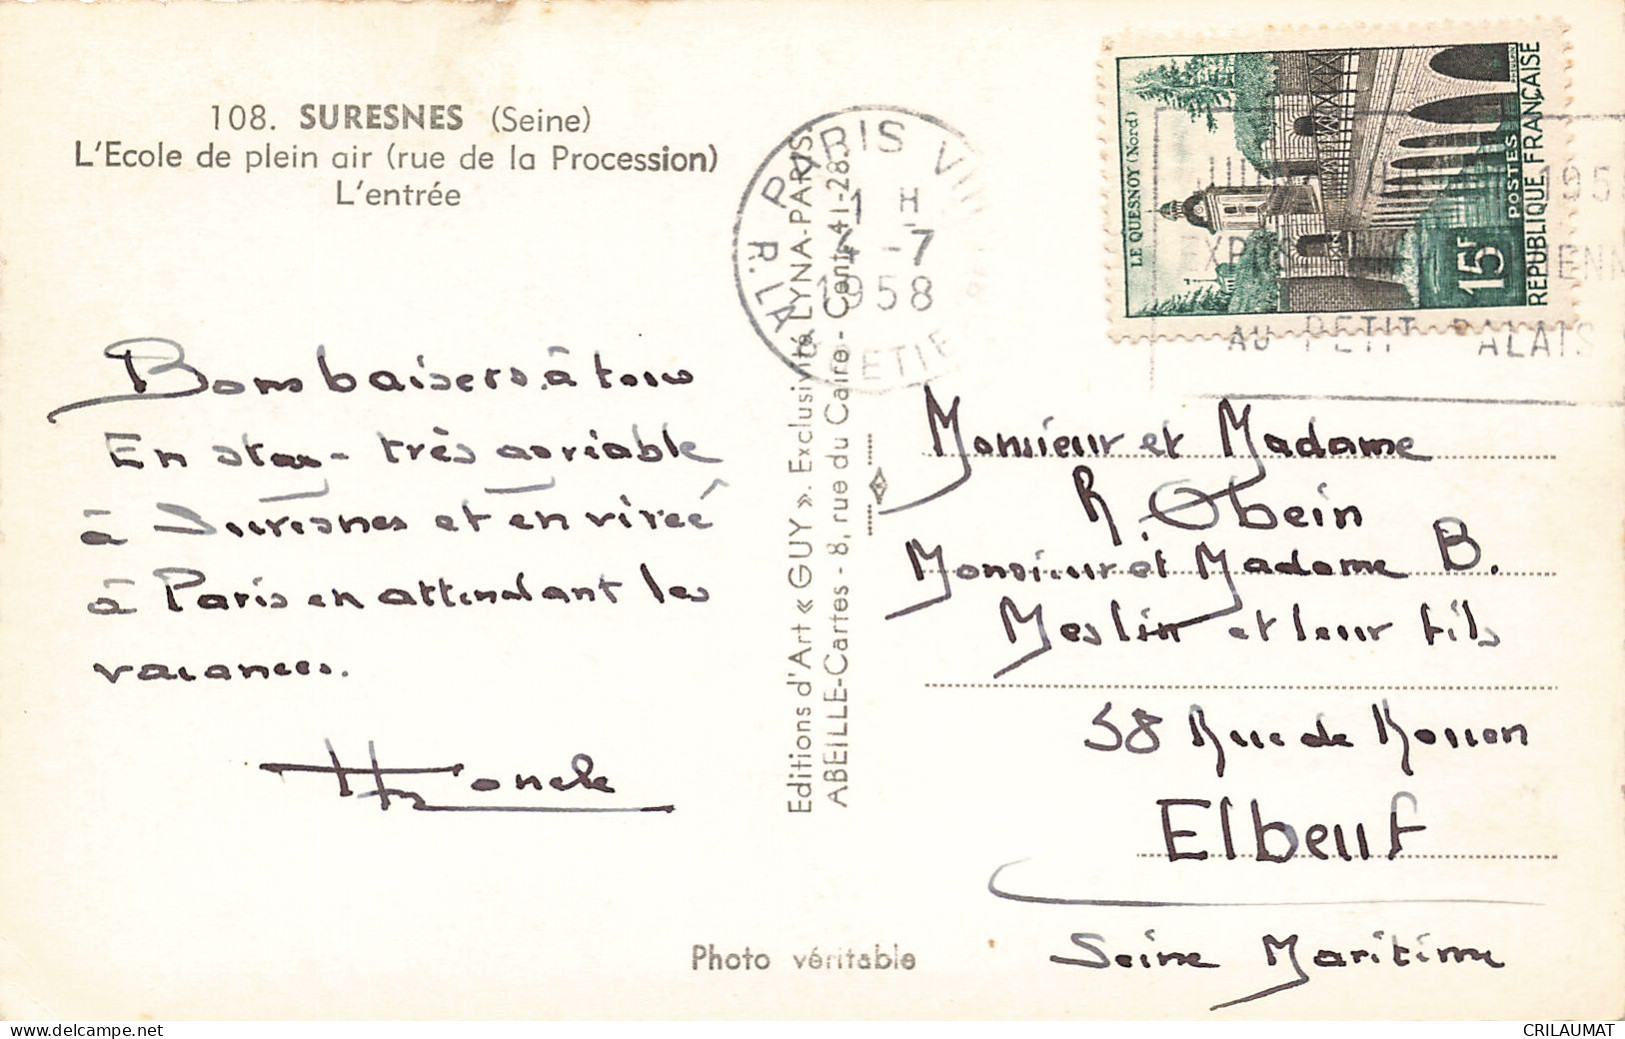 108. SURESNES (Seine)
L'Ecole de plein air (rue de la Procession)
L'entrée
Bons baisers à tous
En stage très agréable
à Suresnes et en virée
à Paris en attendant les
vacances.
Editions d'Art « GUY ». Exclusivité LYNA-PARIS
ABEILLE-Cartes - 8, rue du Caire - Cent. 41-28
Photo véritable
PARIS VIII
R. LA BOETIE
1 H
4 -7
1958
LE QUESNOY (Nord)
POSTES
15F
REPUBLIQUE FRANÇAISE
AU PETIT PALAIS
Monsieur et Madame
R. Obein
Monsieur et Madame B.
Meslin et leur fils
58 Rue de Rouen
Elbeuf
Seine Maritime
www.delcampe.net
CRILAUMAT